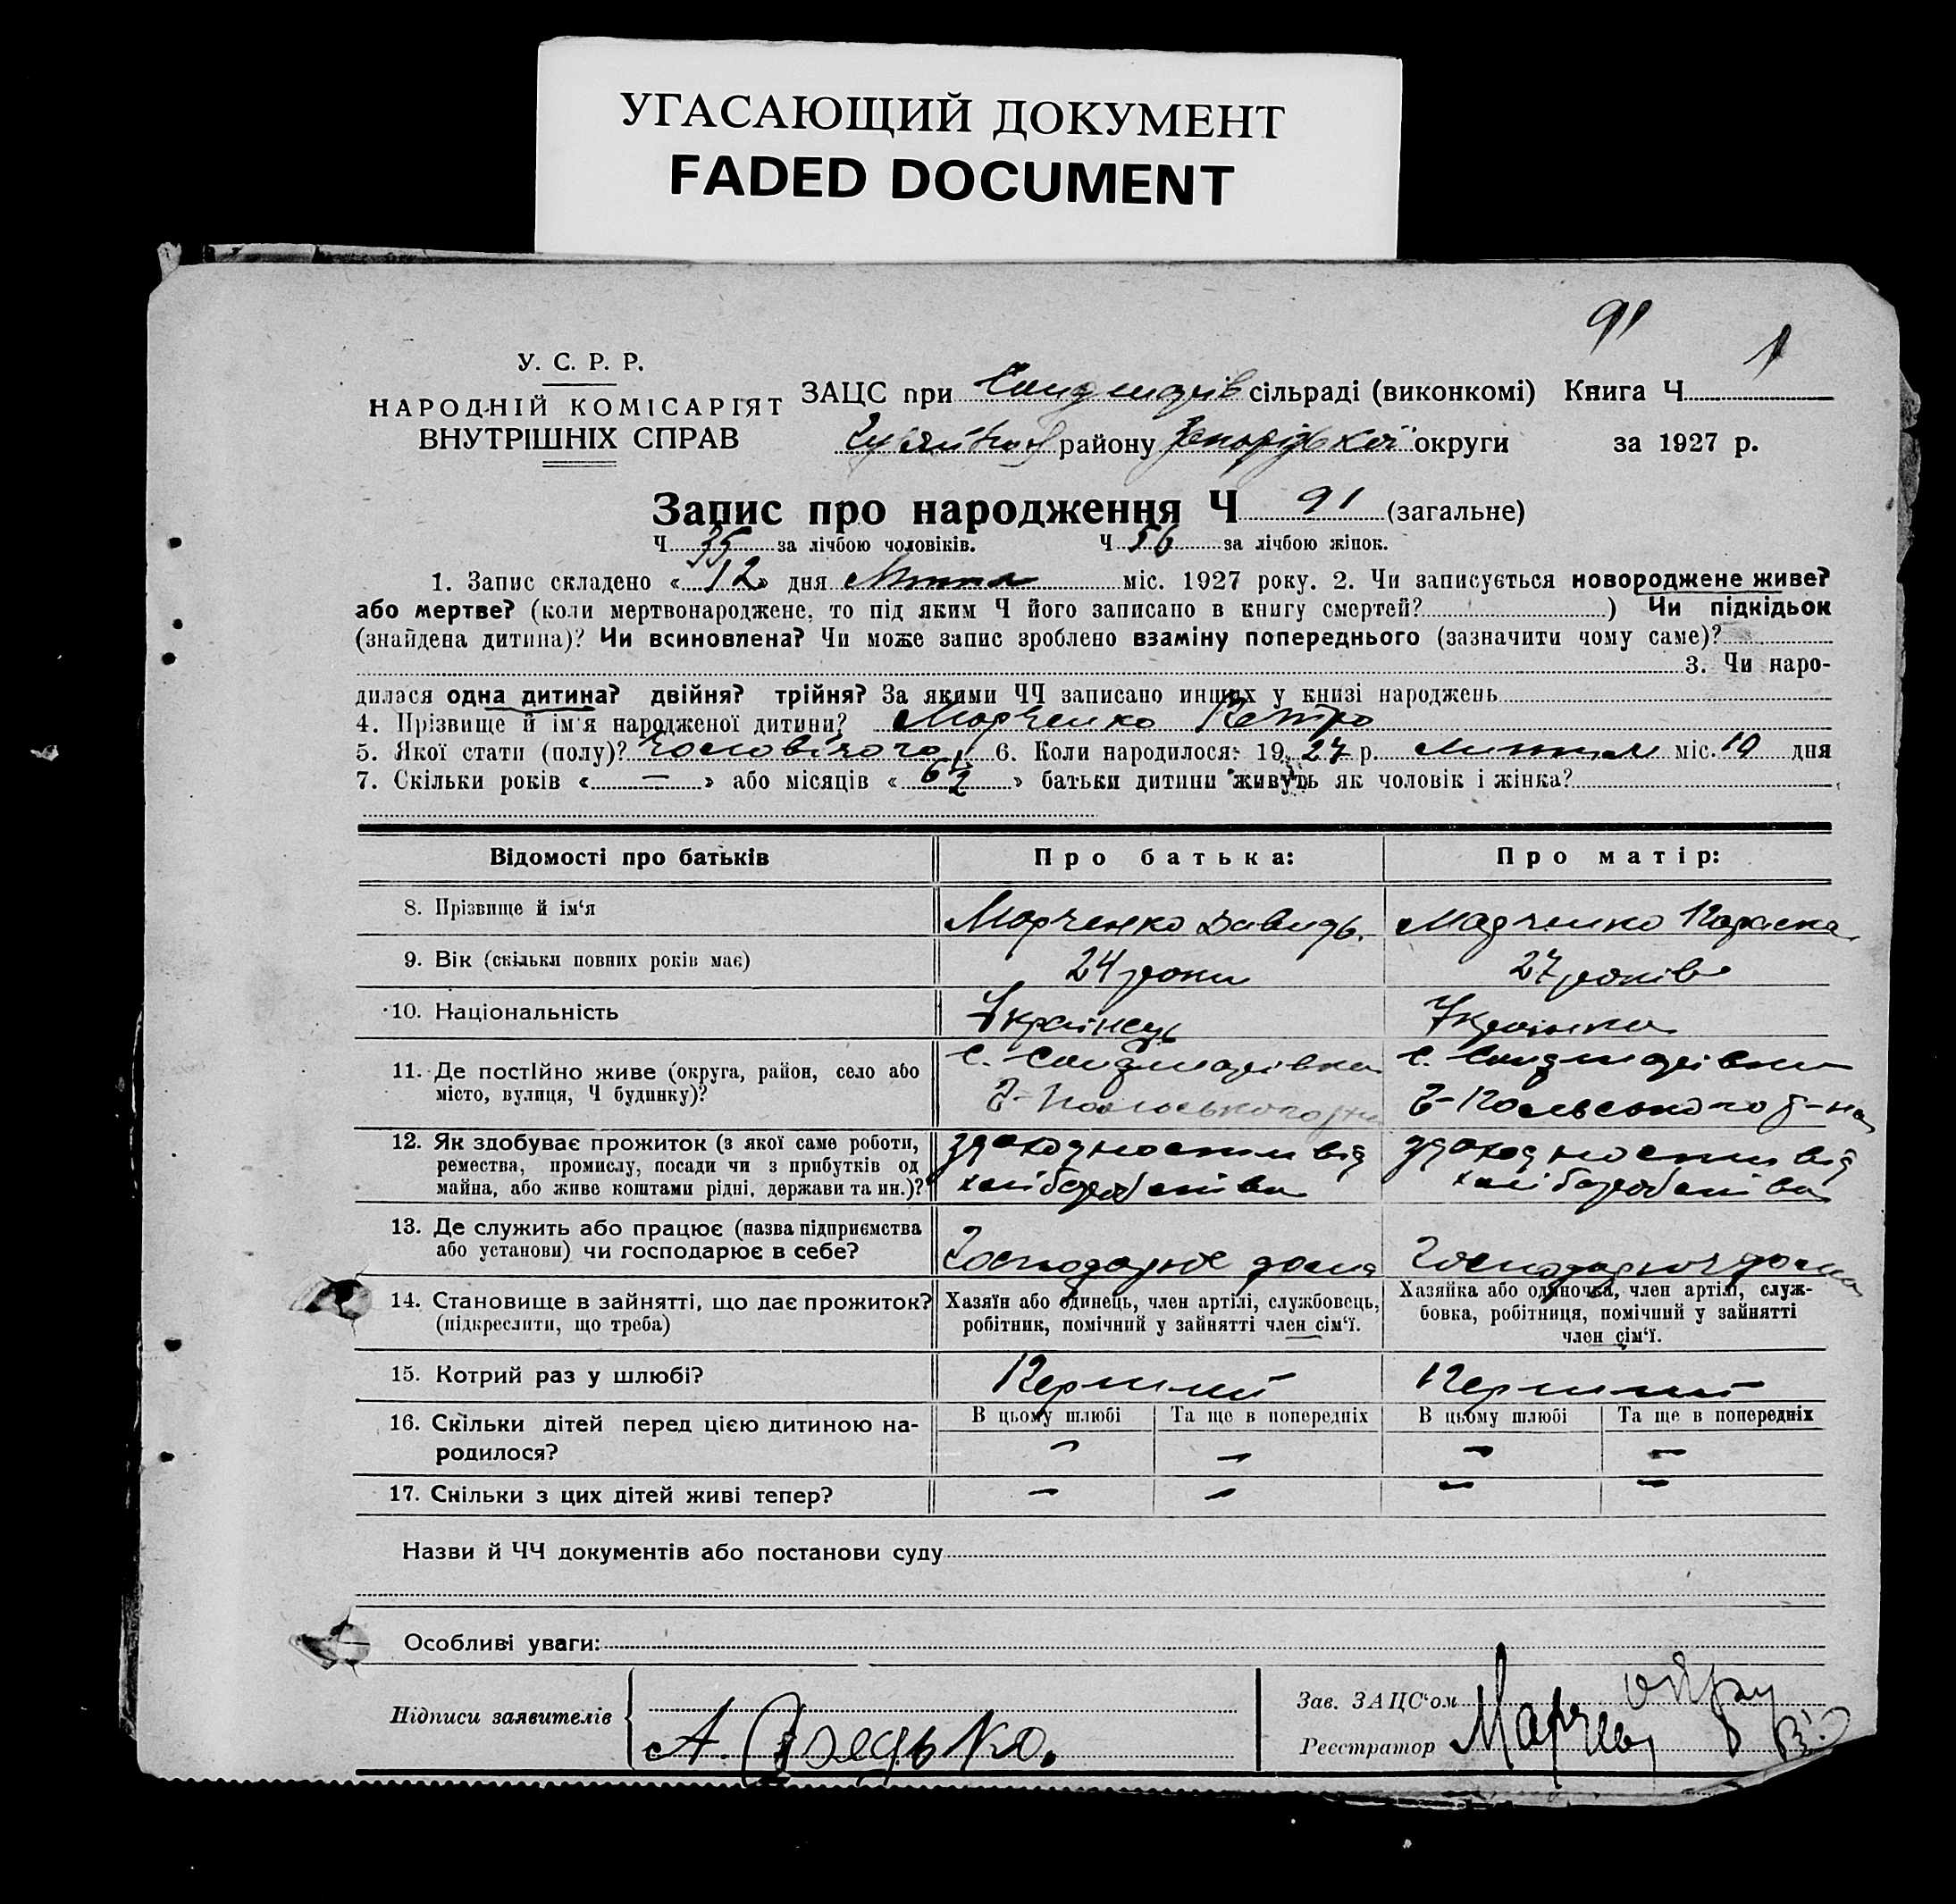 УГАСАЮЩИЙ ДОКУМЕНТ
FADED DOCUMENT
91
1
У. С. Р. Р.
НАРОДНІЙ КОМІСАРІЯТ
ВНУТРІШНІХ СПРАВ
ЗАЦС при сільраді (виконкомі) Книга Ч
району Запорізької округи за 1927 р.
Запис про народження Ч 91 (загальне)
Ч 35 за лічбою чоловіків. Ч 56 за лічбою жінок.
1. Запис складено « 12 » дня Липня міс. 1927 року. 2. Чи записується новороджене живе?
або мертве? (коли мертвонароджене, то під яким Ч його записано в книгу смертей? ) Чи підкідьок
(знайдена дитина)? Чи всиновлена? Чи може запис зроблено взаміну попереднього (зазначити чому саме)?
3. Чи наро-
дилася одна дитина? двійня? трійня? За якими ЧЧ записано инших у книзі народжень
4. Прізвище й ім'я народженої дитини? Марченко Петро
5. Якої стати (полу)? чоловічого 6. Коли народилося: 19 27 р. Липня міс. 10 дня
7. Скільки років « — » або місяців « » батьки дитини живуть як чоловік і жінка?
Відомості про батьків Про батька: Про матір:
8. Прізвище й ім'я Марченко Давидь Марченко Параска
9. Вік (скільки повних років має) 24 роки 27 років
10. Національність Українець Українка
11. Де постійно живе (округа, район, село або
місто, вулиця, Ч будинку)?
12. Як здобуває прожиток (з якої саме роботи,
ремества, промислу, посади чи з прибутків од
майна, або живе коштами рідні, держави та ин.)?
з доходности від
хліборобства
з доходности від
хліборобства
13. Де служить або працює (назва підприємства
або установи) чи господарює в себе?
Господарює дома Господарює дома
14. Становище в зайнятті, що дає прожиток?
(підкреслити, що треба)
Хазяїн або одинець, член артілі, службовець,
робітник, помічний у зайнятті член сім'ї.
Хазяйка або одиночка, член артілі, служ-
бовка, робітниця, помічний у зайнятті
член сім'ї.
15. Котрий раз у шлюбі? Перший Перший
16. Скільки дітей перед цією дитиною на-
родилося?
В цьому шлюбі Та ще в попередніх В цьому шлюбі Та ще в попередніх
— — — —
17. Скільки з цих дітей живі тепер? — — — —
Назви й ЧЧ документів або постанови суду
Особливі уваги:
Підписи заявителів
Зав. ЗАЦС'ом
Реєстратор